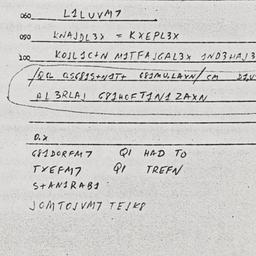 060 L1LUVM7
090 KNAJDL3X = KXEPL3X
100 KOJL1C+N M1TFAJGAL3X 1ND3HAJ3
/QL GSG81S+N1T+ G81MULAXN/CM D1V
A1 3RLAJ G81HOFT1N1ZAXN
0.X
G81DORFM7 Q1 HAD TO
TXEFM7 Q1 TREFN
S+AN1RAB1
JOMTOJVM7 TEJK8